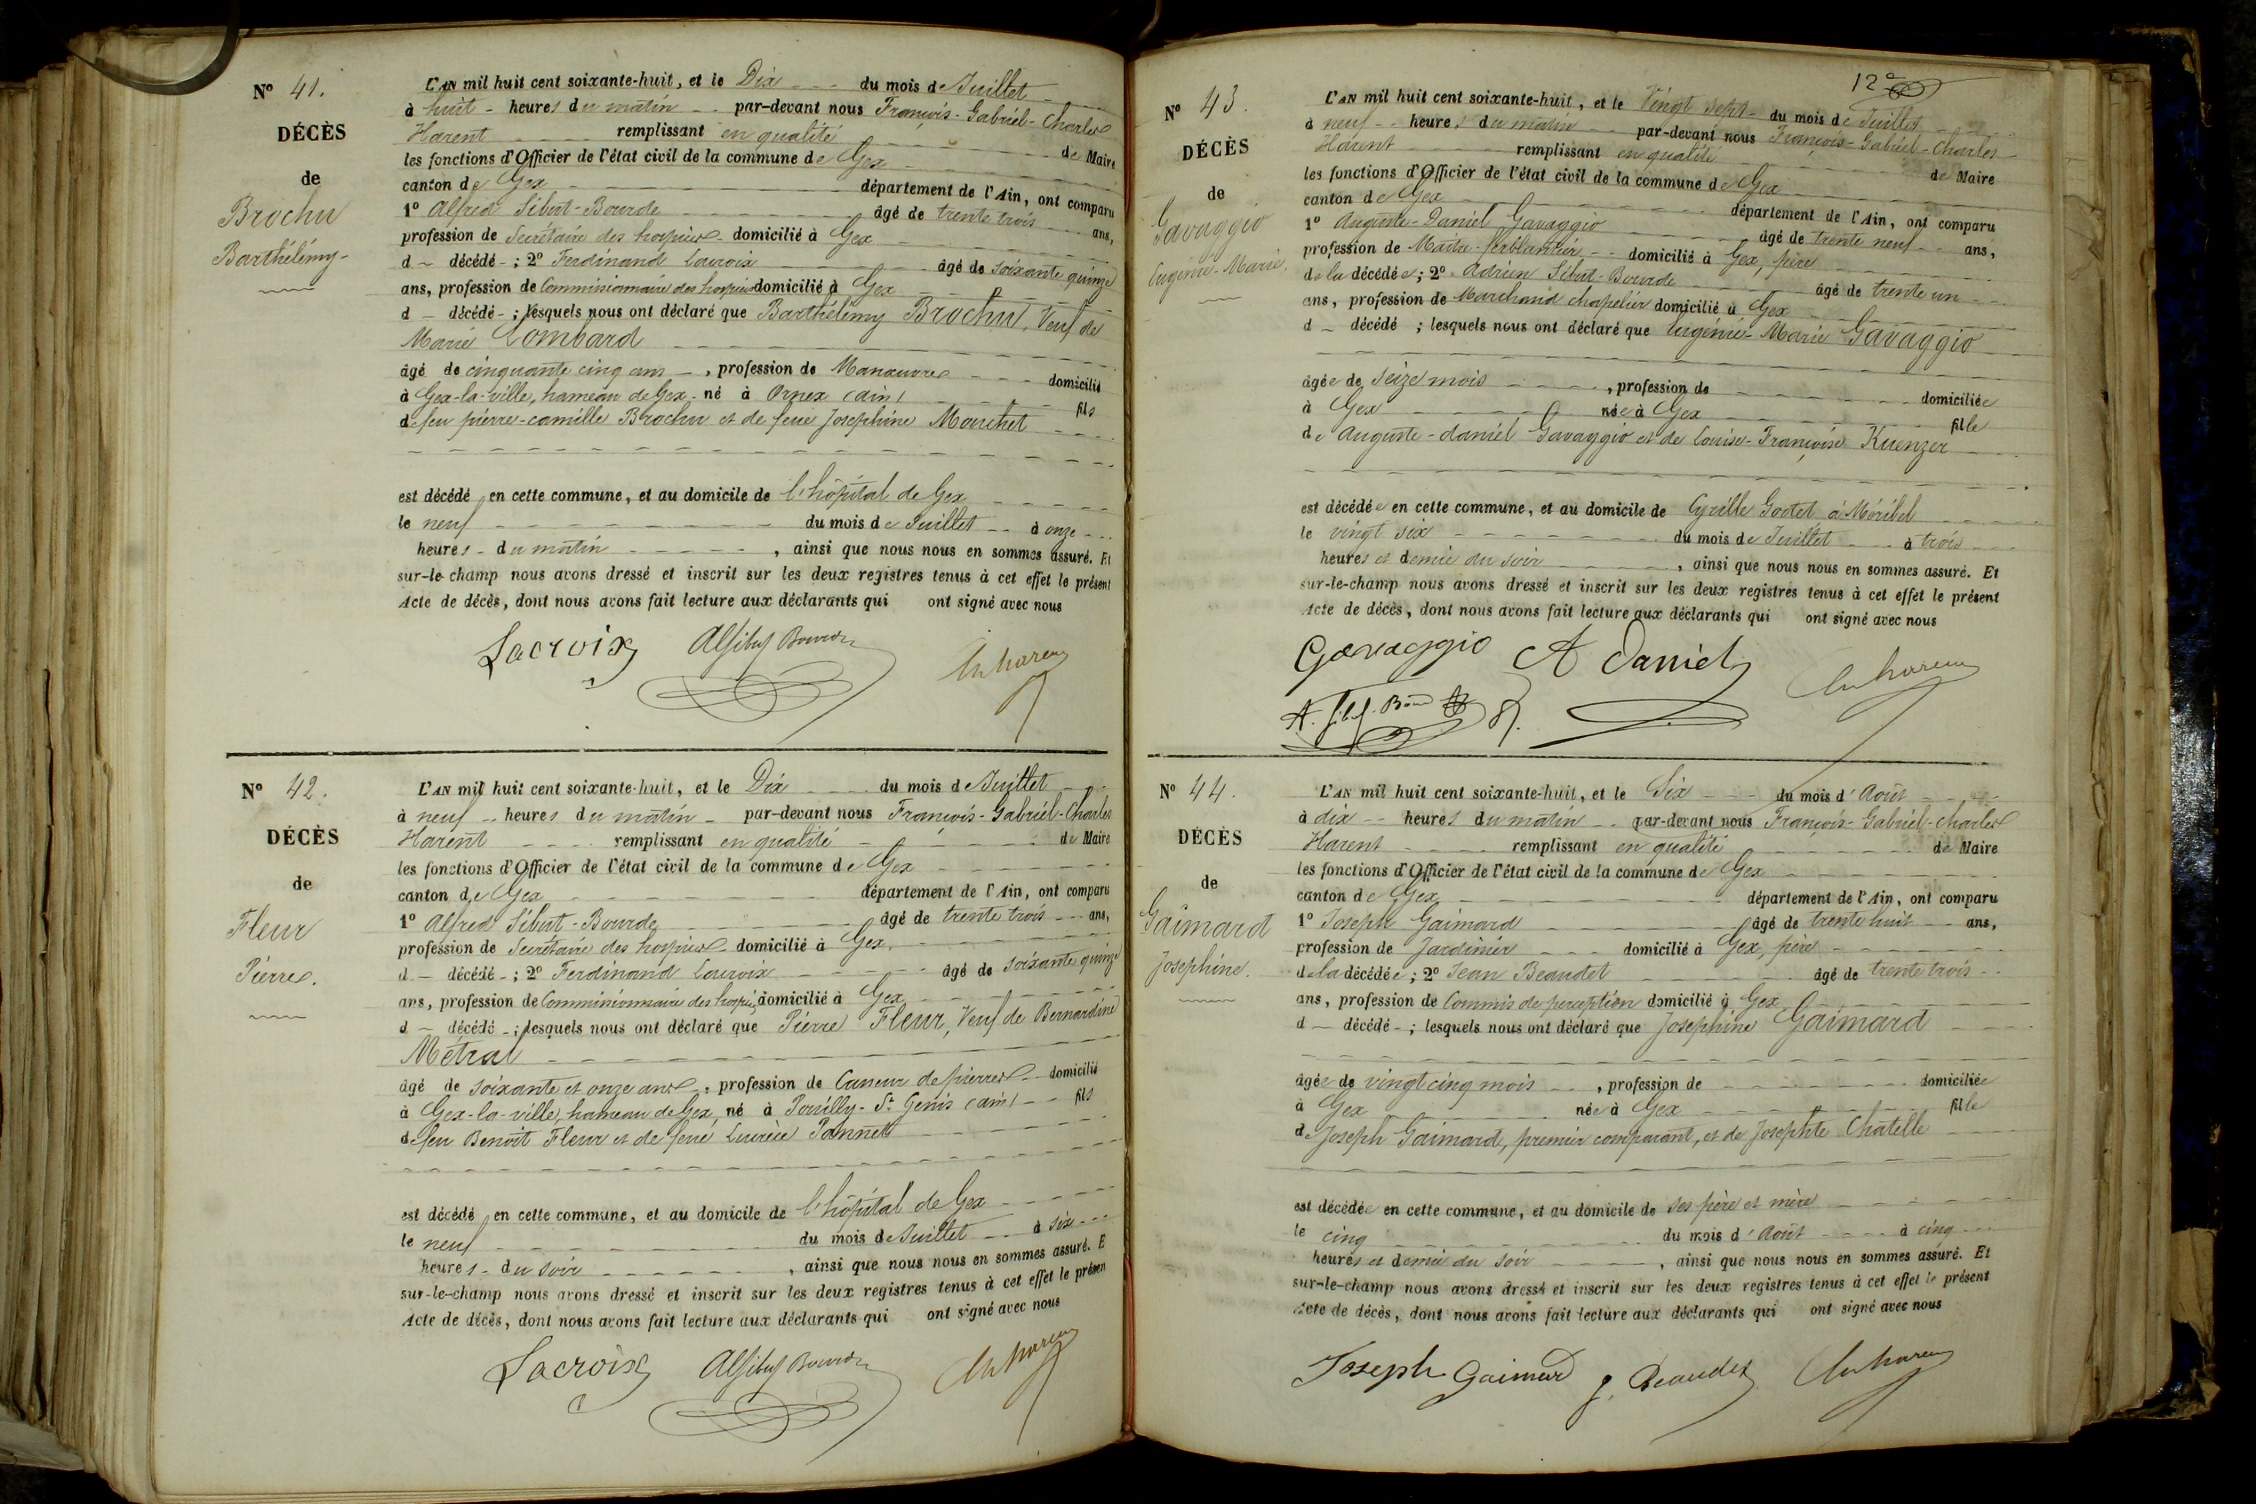 Nº 41.
DÉCÈS
de
Brochu
Barthélémy
L'AN mil huit cent soixante-huit, et le Dix du mois de Juillet
à huit heures du matin par-devant nous François-Gabriel-Charles
Harent remplissant en qualité de Maire
les fonctions d'Officier de l'état civil de la commune de Gex
canton de Gex département de l'Ain, ont comparu
1º Alfred Sibut-Bourde âgé de trente trois ans,
profession de Secrétaire des hospices domicilié à Gex
d décédé ; 2º Ferdinand Lacroix âgé de soixante quinze
ans, profession de Commissionnaire des hospices domicilié à Gex
d décédé ; lesquels nous ont déclaré que Barthélémy Brochu, Veuf de
Marie Lombard
âgé de cinquante cinq ans, profession de Manœuvre domicilié
à Gex-la-ville, hameau de Gex né à Ornex (ain) fils
de feu pierre-camille Brochu et de feue Josephine Mouchet
est décédé en cette commune, et au domicile de l'hôpital de Gex
le neuf du mois de Juillet à onze
heures du matin, ainsi que nous nous en sommes assuré. Et
sur-le-champ nous avons dressé et inscrit sur les deux registres tenus à cet effet le présent
Acte de décès, dont nous avons fait lecture aux déclarants qui ont signé avec nous
Lacroix Alf Sibut Bourde Ch harent
Nº 42.
DÉCÈS
de
Fleur
Pierre.
L'AN mil huit cent soixante-huit, et le Dix du mois de Juillet
à neuf heures du matin par-devant nous François-Gabriel-Charles
Harent remplissant en qualité de Maire
les fonctions d'Officier de l'état civil de la commune de Gex
canton de Gex département de l'Ain, ont comparu
1º Alfred Sibut-Bourde âgé de trente trois ans,
profession de Secrétaire des hospices domicilié à Gex.
d décédé ; 2º Ferdinand Lacroix âgé de soixante quinze
ans, profession de Commissionnaire des hospices domicilié à Gex
d décédé ; lesquels nous ont déclaré que Pierre Fleur, Veuf de Bernardine
Métral
âgé de soixante et onze ans, profession de Casseur de pierres domicilié
à Gex-la-ville, hameau de Gex, né à Pouilly-St Genis (ain) fils
de feu Benoît Fleur et de feue Lucrèce Pannet
est décédé en cette commune, et au domicile de l'hôpital de Gex
le neuf du mois de Juillet à six
heures du soir, ainsi que nous nous en sommes assuré. E
sur-le-champ nous avons dressé et inscrit sur les deux registres tenus à cet effet le présen
Acte de décès, dont nous avons fait lecture aux déclarants qui ont signé avec nous
Lacroix Alf Sibut Bourde Ch harent
12e
Nº 43.
DÉCÈS
de
Gavaggio
Eugénie-Marie.
L'AN mil huit cent soixante-huit, et le Vingt sept du mois de Juillet
à neuf heures du matin par-devant nous François-Gabriel-Charles
Harent remplissant en qualité de Maire
les fonctions d'Officier de l'état civil de la commune de Gex
canton de Gex département de l'Ain, ont comparu
1º Auguste-Daniel Gavaggio âgé de trente neuf ans,
profession de Maitre-ferblantier domicilié à Gex, père
de la décédée ; 2º Adrien Sibut-Bourde âgé de trente un
ans, profession de Marchand chapelier domicilié à Gex
d décédé ; lesquels nous ont déclaré que Eugénie-Marie Gavaggio
âgée de Seize mois, profession de domiciliée
à Gex née à Gex fille
de Auguste-daniel Gavaggio et de Louise-Françoise Kuenzer
est décédée en cette commune, et au domicile de Cyrille Gotet à Méribel
le vingt six du mois de Juillet à trois
heures et demie du soir, ainsi que nous nous en sommes assuré. Et
sur-le-champ nous avons dressé et inscrit sur les deux registres tenus à cet effet le présent
Acte de décès, dont nous avons fait lecture aux déclarants qui ont signé avec nous
Gavaggio A Daniel Ch harent
A. Sibut-Bourde
Nº 44.
DÉCÈS
de
Gaimard
Josephine.
L'AN mil huit cent soixante-huit, et le Six du mois d'Août
à dix heures du matin par-devant nous François-Gabriel-Charles
Harent remplissant en qualité de Maire
les fonctions d'Officier de l'état civil de la commune de Gex
canton de Gex département de l'Ain, ont comparu
1º Joseph Gaimard âgé de trente huit ans,
profession de Jardinier domicilié à Gex, père
de la décédée ; 2º Jean Beaudet âgé de trente trois
ans, profession de Commis de perception domicilié à Gex
d décédé ; lesquels nous ont déclaré que Josephine Gaimard
âgée de vingt cinq mois, profession de domiciliée
à Gex née à Gex fille
de Joseph Gaimard, premier comparant, et de Josephte Chatelle
est décédée en cette commune, et au domicile de ses père et mère
le cinq du mois d'Août à cinq
heures et demie du soir, ainsi que nous nous en sommes assuré. Et
sur-le-champ nous avons dressé et inscrit sur les deux registres tenus à cet effet le présent
Acte de décès, dont nous avons fait lecture aux déclarants qui ont signé avec nous
Joseph Gaimard J. Beaudet Ch harent